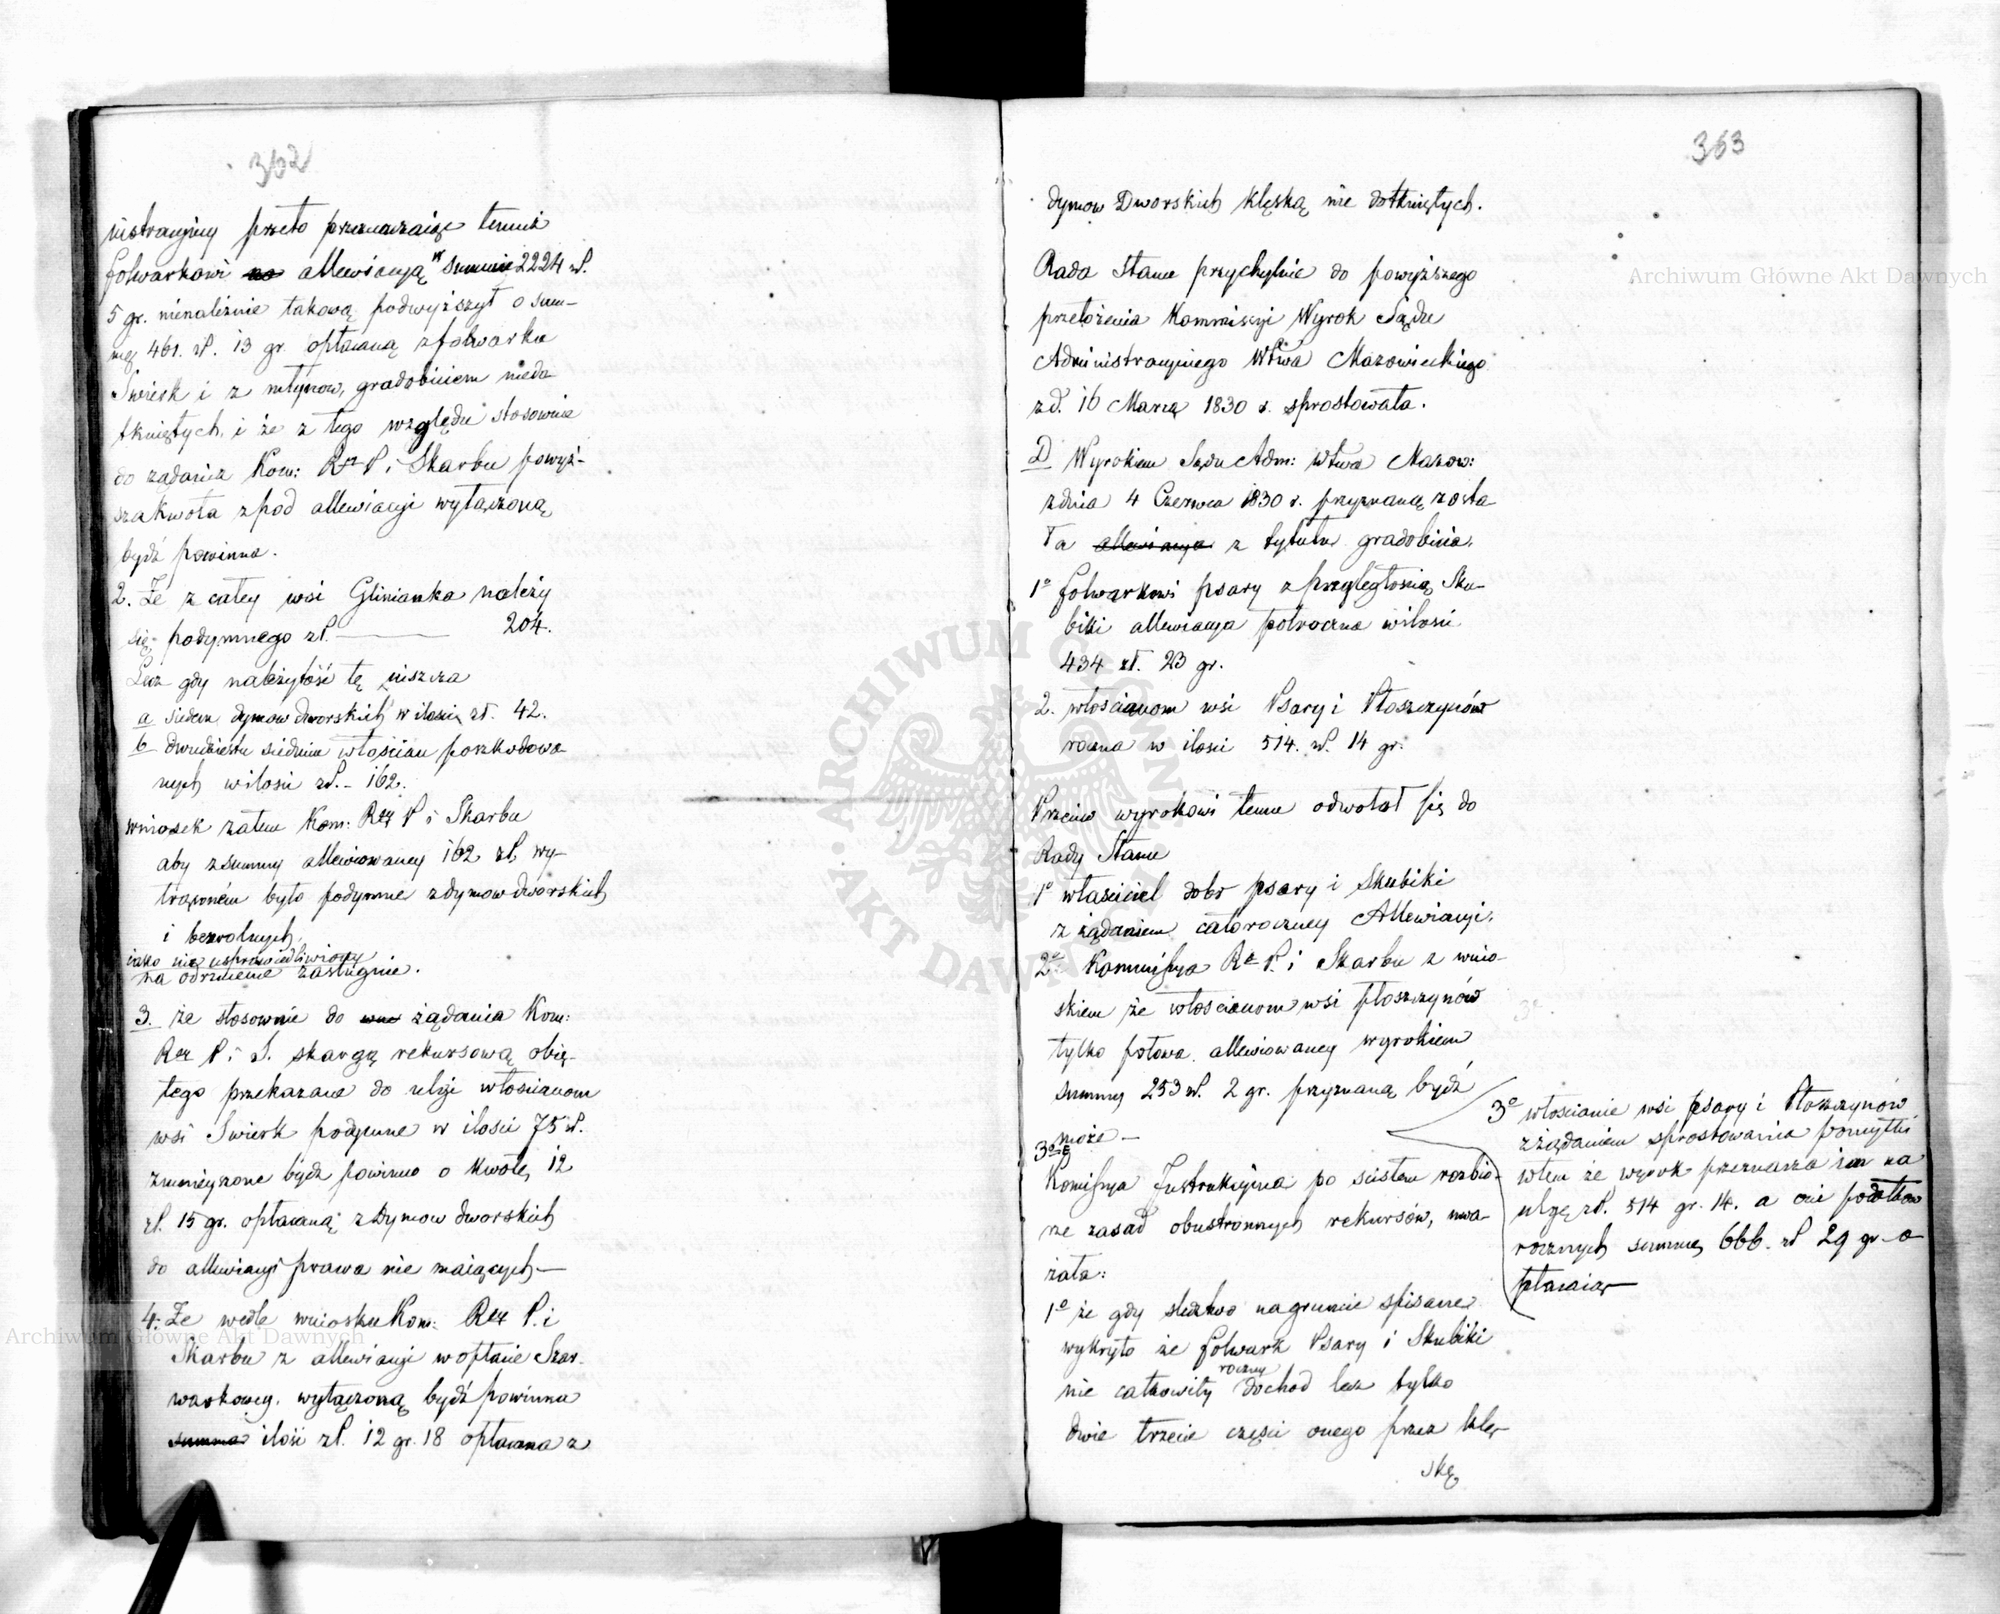 362
nistracyiny przeto przeznaczaiąc temuż
folwarkowi na allewiacyą w summie 2224 zł.
5 gr. nienależnie takową podwyższył o sum-
mę 461. zł. 13 gr. opłacaną z folwarku
Swierk i z młynow, gradobiciem niedo
tkniętych, i że z tego względu stosownie
do żądania Kom: Rz P i Skarbu powyż-
sza kwota z pod allewiacyi wyłączoną
bydź powinna.
2. Że z całey wsi Glinianka należy
się podymnego zł. ——— 204.
Lecz gdy należytość tę uiszcza
a siedem dymow dworskich w ilości zł. 42.
b dwudziestu siedmiu włościan poszkodowa
nych w ilości zł. - 162.
wniosek zatem Kom: Rzy P i Skarbu
aby z summy allewiowaney 162 zł. wy-
trąconém było podymne z dymow dworskich
i bezrolnych,
iako nie usprawiedliwiony
na odrzucenie zasługuie.
3. że stosownie do żądania Kom:
Rzy P i S. skargą rekursową obię-
tego przekazane do ulgi włościanom
wsi Swierk podymne w ilości 75 zł.
zmnieyszone bydź powinno o kwotę 12
zł. 15 gr. opłacaną z dymow dworskich
do allewiacyi prawa nie maiących —
4. Że wedle wniosku Kom: Rzy P. i
Skarbu z allewiacyi w opłacie Szar-
warkowey, wyłączoną bydź powinna
summa ilość zł. 12 gr. 18 opłacana z
363
dymow Dworskich klęską nie dotkniętych.
Rada Stanu przychylnie do powyższego
przełożenia Kommissyi Wyrok Sądu
Administracyinego Wtwa Mazowieckiego
z d. 16 Marca 1830 r. sprostowała.
D Wyrokiem Sądu Adm: Wtwa Mazow:
z dnia 4 Czerwca 1830 r. przyznaną zosta
ła allewiacya z tytułu gradobicia,
1º folwarkowi psary z przyległością Sku-
biki allewiacya połroczna w ilości
434 zł. 23 gr.
2. włościanom wsi Psary i Płoszczynów
roczna w ilości 514. zł. 14 gr.
Przeciw wyrokowi temu odwołał się do
Rady Stanu
1º właściciel dobr psary i Skubiki
z żądaniem całoroczney Allewiacyi.
2º Kommissya Rz P. i Skarbu z wnio-
skiem że włościanom wsi płoszczynów
tylko połowa allewiowaney wyrokiem
summy 253 zł. 2 gr. przyznaną bydź
może —
3º włościanie wsi psary i Płoszczynów
z żądaniem sprostowania pomyłki
w tem że wyrok przeznacza im na
ulgę zł. 514 gr. 14. a oni podatkow
rocznych summę 666. zł 29 gr. o
płacaią —
Komissya Instrukcyina po scisłem rozbio-
rze zasad obustronnych rekursów, uwa-
żała:
1º że gdy sledztwo na gruncie spisane
wykryło że folwark Psary i Skubiki
nie całkowity roczny dochod lecz tylko
dwie trzecie części onego przez klę-
skę
Archiwum Główne Akt Dawnych
Archiwum Główne Akt Dawnych
ARCHIWUM GŁÓWNE AKT DAWNYCH